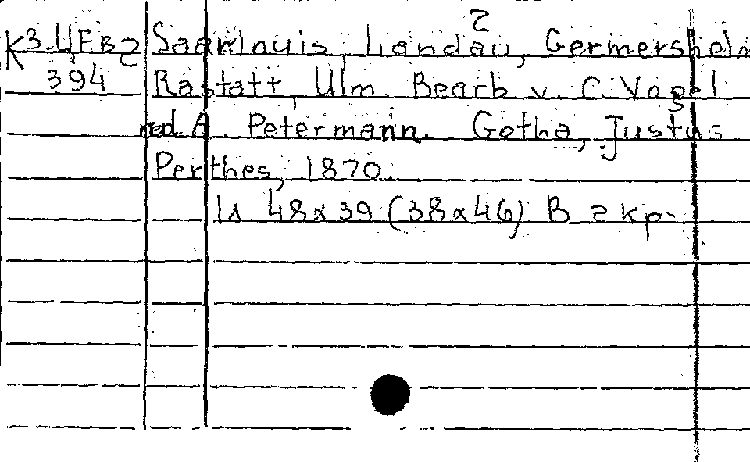 K 3 Saarlouis, Landau, Germersheim
394 Rastatt, Ulm. Bearb v. C. Vogel
red. A. Petermann. Gotha, Justus
Perthes, 1870.
1s 48x39 (38x46) B 2 kp.